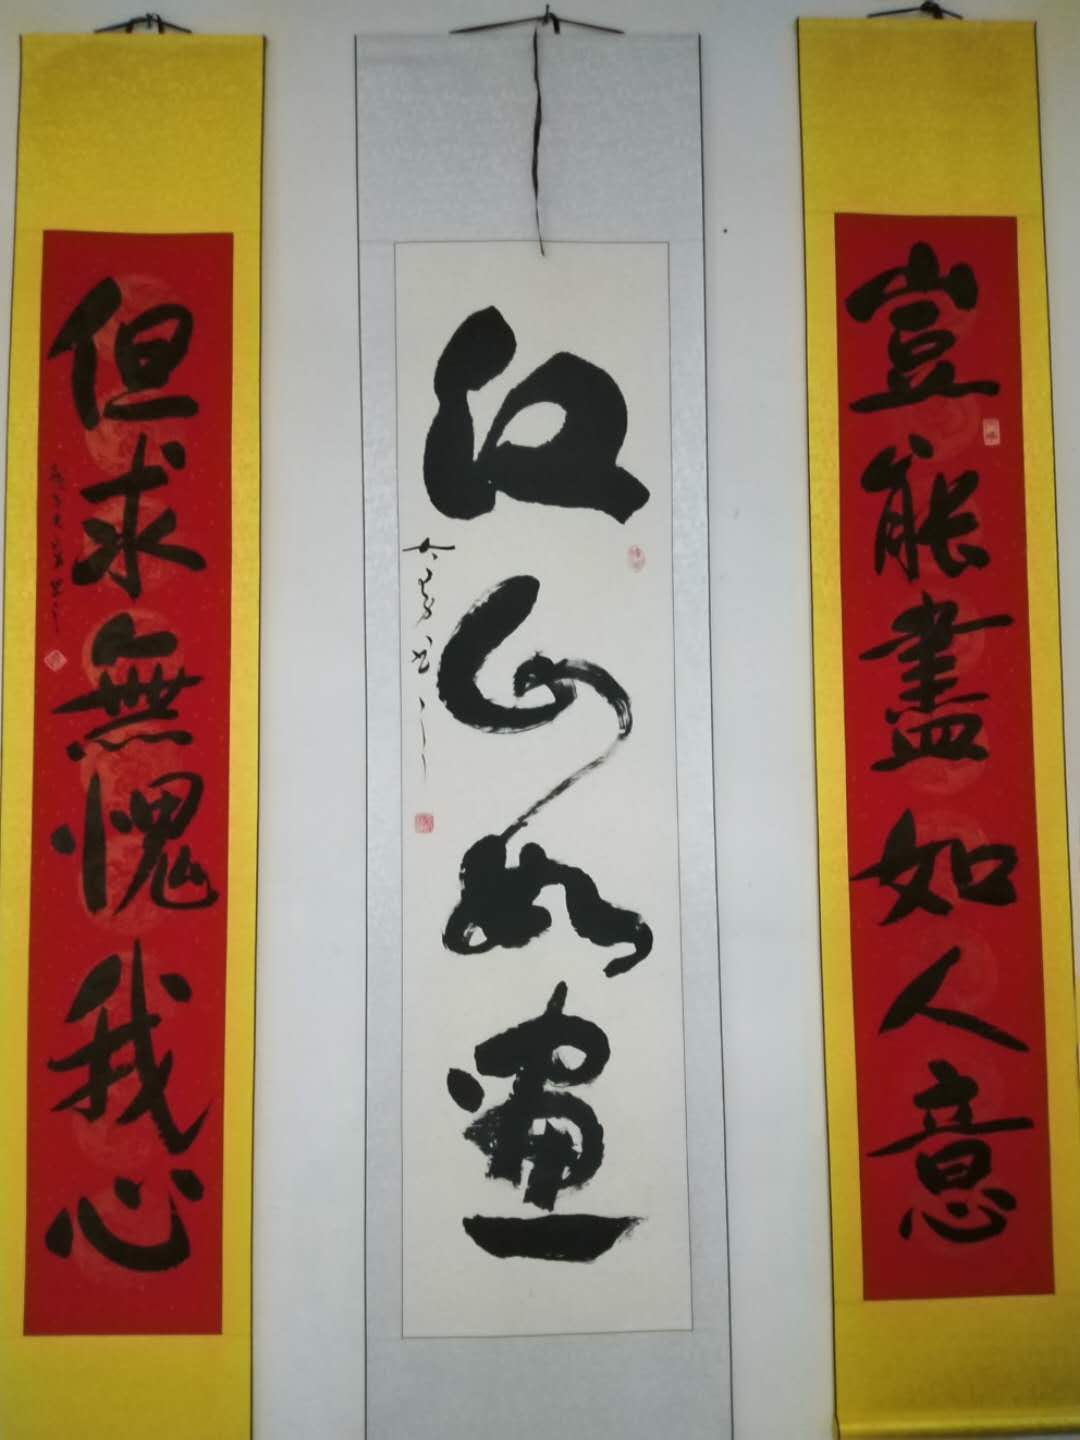 豈能盡如人意
江山如畫
但求無愧我心